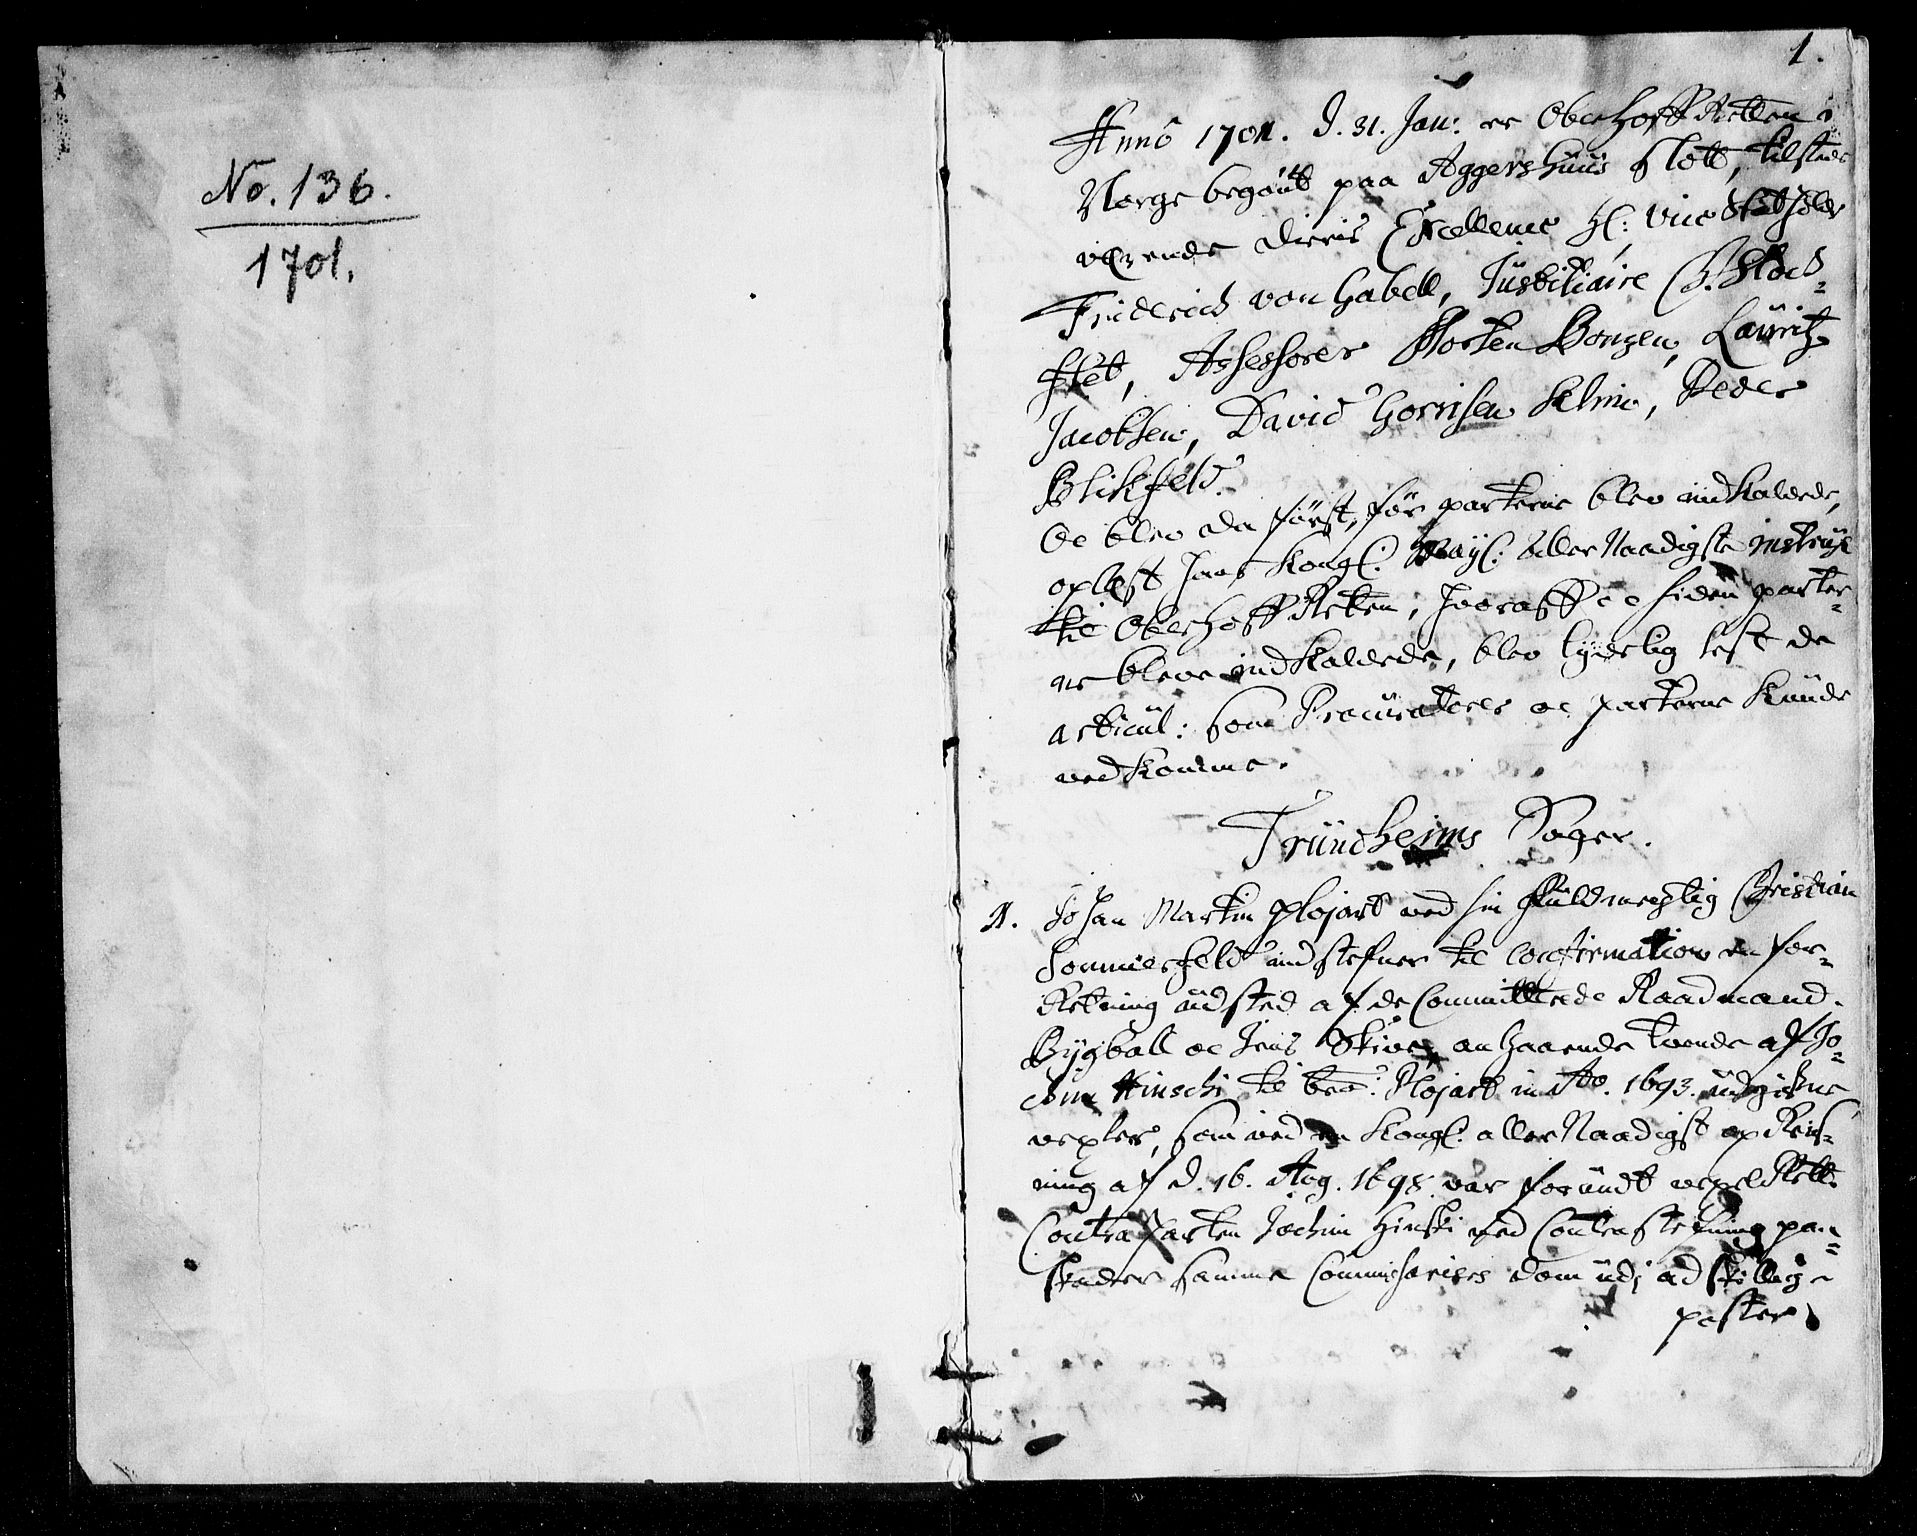 No. 136.
1701.
1.
Anno 1701. d. 31. Jan: er OberHoffRetten i
Norge begÿnt paa AggersHuus Slott, tilstede
værende Deris Excellence H: Vice Statholder
Friderich von Gabell, Justitiaire C. Stoc=
flet, Assessorer Morten Borgen, Lauritz
Jacobsen, David Gorrisen Klim, Peder
Blikfeld.
Oc blev da först, för parterne blev indkaldede,
oplest Hans Kongl: Mayl: Aller Naadigste instrux
til OberHoffRetten, hvoraff oc siden parter=
ne bleve indkaldede, blev lÿdelig lest de
articul: som Procuratores oc parterne kunde
vedkomme.
Trundheims Sager.
1. Johan Martin Plojart ved sin fuldmegtig Christian
Sommerfeld indstefner til confirmation en for=
Retning udsted af de Committerede Raadmand
Bygball oc Jens Skive, anhaarende tvende af Jo=
chim Hinschi til bem: Plojart in Ao. 1693. udgifne
vexler, som ved en Kongl: aller Naadigst opReis=
ning af d. 16. Aug. 1698. var forundt vexel Rett.
Contraparten Jochim Hinski ved Contrastefning paa=
skader samme Commissariers dom udj adskillige
poster